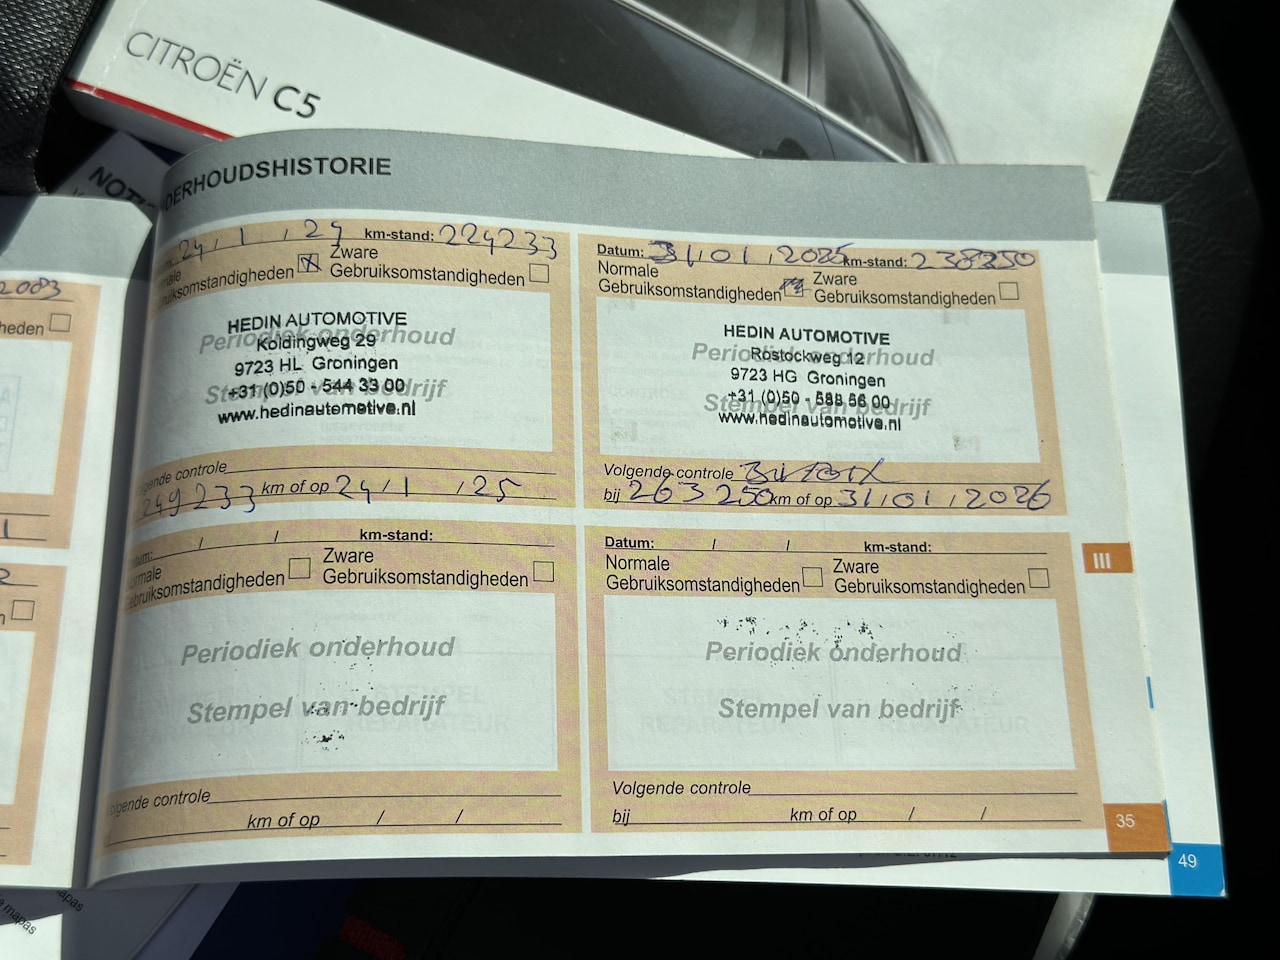 CITROËN C5
DERHOUDSHISTORIE
24 / 1 / 24 km-stand: 224233
Gebruiksomstandigheden X Zware Gebruiksomstandigheden
Periodiek onderhoud
Stempel van bedrijf
HEDIN AUTOMOTIVE
Koldingweg 29
9723 HL Groningen
+31 (0)50 - 544 33 00
www.hedinautomotive.nl
lgende controle
249233 km of op 24 / 1 / 25
Datum: 31 / 01 / 2025 km-stand: 238250
Normale Gebruiksomstandigheden Zware Gebruiksomstandigheden
Periodiek onderhoud
Stempel van bedrijf
HEDIN AUTOMOTIVE
Rostockweg 12
9723 HG Groningen
+31 (0)50 - 588 66 00
www.hedinautomotive.nl
Volgende controle
bij 263 250 km of op 31 / 01 / 2026
/ / km-stand:
Gebruiksomstandigheden Zware Gebruiksomstandigheden
Periodiek onderhoud
Stempel van bedrijf
lgende controle
km of op / /
Datum: / / km-stand:
Normale Gebruiksomstandigheden Zware Gebruiksomstandigheden
Periodiek onderhoud
Stempel van bedrijf
Volgende controle
bij km of op / /
III
35
49
2083
heden
mapas